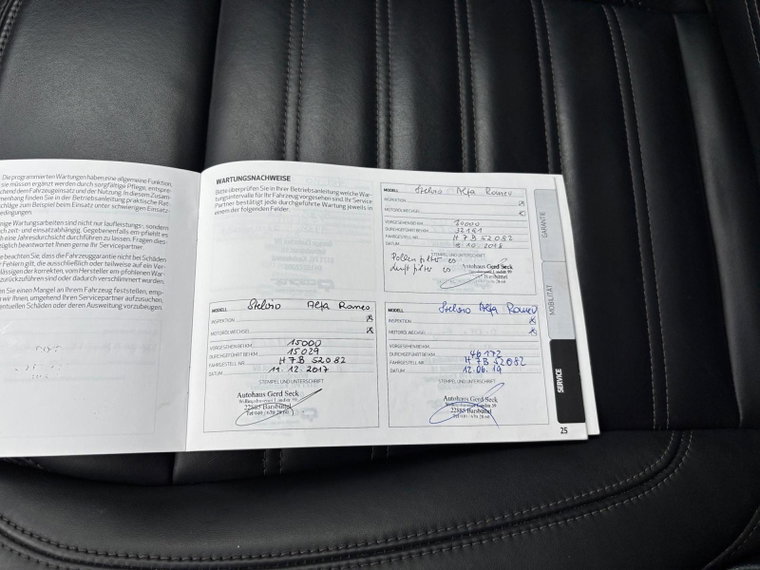 Die programmierten Wartungen haben eine allgemeine Funktion,
sie müssen ergänzt werden durch sorgfältige Pflege, entspre-
chend dem Fahrzeugeinsatz und der Nutzung. In diesem Zusam-
menhang finden Sie in der Betriebsanleitung praktische Rat-
schläge zum Beispiel beim Einsatz unter schwierigen Einsatz-
bedingungen.
inige Wartungsarbeiten sind nicht nur laufleistungs-, sondern
ch zeit- und einsatzabhängig. Gegebenenfalls empfiehlt es
ch eine Jahresdurchsicht durchführen zu lassen. Fragen dies
züglich beantwortet Ihnen gerne Ihr Servicepartner.
e beachten Sie, dass die Fahrzeuggarantie nicht bei Schäden
Fehlern gilt, die ausschließlich oder teilweise auf ein Ver-
lässigen der korrekten, vom Hersteller empfohlenen War-
zurückzuführen sind oder dadurch verschlimmert wurden.
n Sie einen Mangel an Ihrem Fahrzeug feststellen, emp-
n wir Ihnen, umgehend Ihren Servicepartner aufzusuchen,
entuellen Schäden oder deren Ausweitung vorzubeugen.
WARTUNGSNACHWEISE
Bitte überprüfen Sie in Ihrer Betriebsanleitung welche War-
tungsintervalle für Ihr Fahrzeug vorgesehen sind. Ihr Service
Partner bestätigt jede durchgeführte Wartung jeweils in
einem der folgenden Felder.
MODELL Stelvio Alfa Romeo
INSPEKTION
MOTORÖLWECHSEL
VORGESEHEN BEI KM 30000
DURCHGEFÜHRT BEI KM
FAHRGESTELL NR. H 7B 52082
DATUM 10. 2018
STEMPEL UND UNTERSCHRIFT
Autohaus Gerd Seck
22885 Barsbüttel
MODELL Stelvio Alfa Romeo
INSPEKTION
MOTORÖLWECHSEL
VORGESEHEN BEI KM 15000
DURCHGEFÜHRT BEI KM 15029
FAHRGESTELL NR. H 7B 52082
DATUM 11. 12. 2017
STEMPEL UND UNTERSCHRIFT
Autohaus Gerd Seck
22885 Barsbüttel
MODELL Stelvio Alfa Romeo
INSPEKTION
MOTORÖLWECHSEL
VORGESEHEN BEI KM
DURCHGEFÜHRT BEI KM 46172
FAHRGESTELL NR. H 7B 52082
DATUM 12.06.19
STEMPEL UND UNTERSCHRIFT
Autohaus Gerd Seck
22885 Barsbüttel
GARANTIE
MOBILITÄT
SERVICE
25